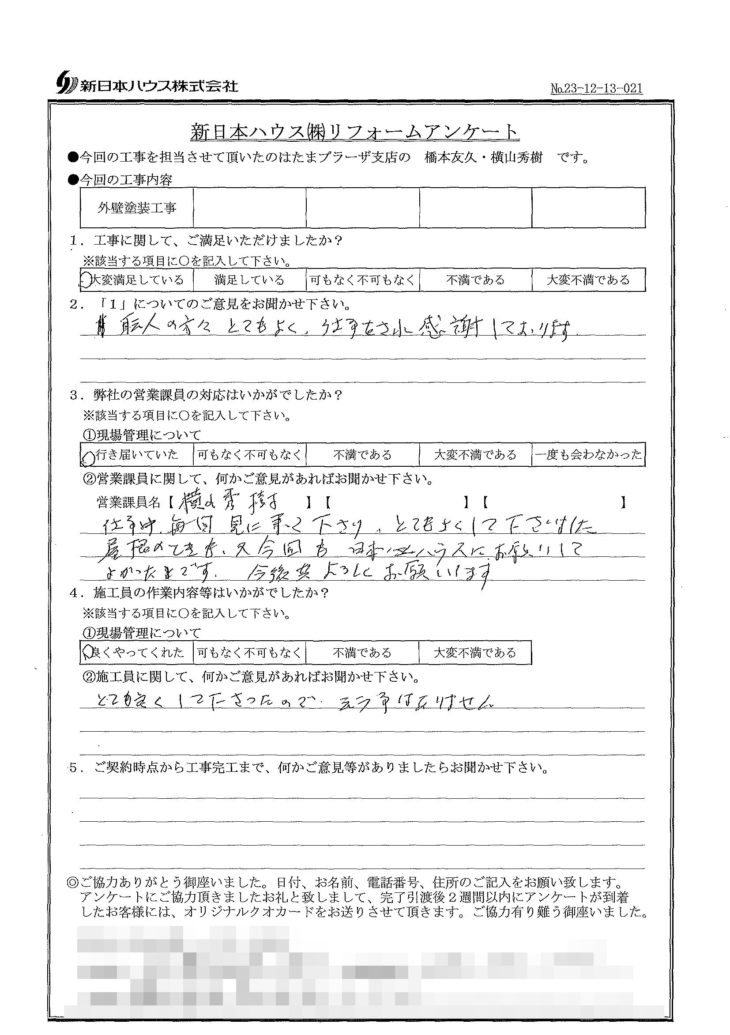 新日本ハウス株式会社
No.23-12-13-021
新日本ハウス㈱リフォームアンケート
●今回の工事を担当させて頂いたのはたまプラーザ支店の 橋本友久・横山秀樹 です。
●今回の工事内容
外壁塗装工事
1.工事に関して、ご満足いただけましたか?
※該当する項目に○を記入して下さい。
大変満足している 満足している 可もなく不可もなく 不満である 大変不満である
2.「1」についてのご意見をお聞かせ下さい。
職人の方々 とてもよく、仕事をされ 感謝しております
3.弊社の営業課員の対応はいかがでしたか?
※該当する項目に○を記入して下さい。
①現場管理について
行き届いていた 可もなく不可もなく 不満である 大変不満である 一度も会わなかった
②営業課員に関して、何かご意見があればお聞かせ下さい。
営業課員名【 横山秀樹 】【 】【 】
仕事中、毎回 見に来て下さり、とてもよくして下さいました
屋根のときも、又今回も 日本ハウスにお願いして
よかったです。 今後共よろしくお願いします
4.施工員の作業内容等はいかがでしたか?
※該当する項目に○を記入して下さい。
①現場管理について
良くやってくれた 可もなく不可もなく 不満である 大変不満である
②施工員に関して、何かご意見があればお聞かせ下さい。
とても良くして下さったので、言う事はありません
5.ご契約時点から工事完工まで、何かご意見等がありましたらお聞かせ下さい。
◎ご協力ありがとう御座いました。日付、お名前、電話番号、住所のご記入をお願い致します。
アンケートにご協力頂きましたお礼と致しまして、完了引渡後2週間以内にアンケートが到着
したお客様には、オリジナルクオカードをお送りさせて頂きます。ご協力有り難う御座いました。